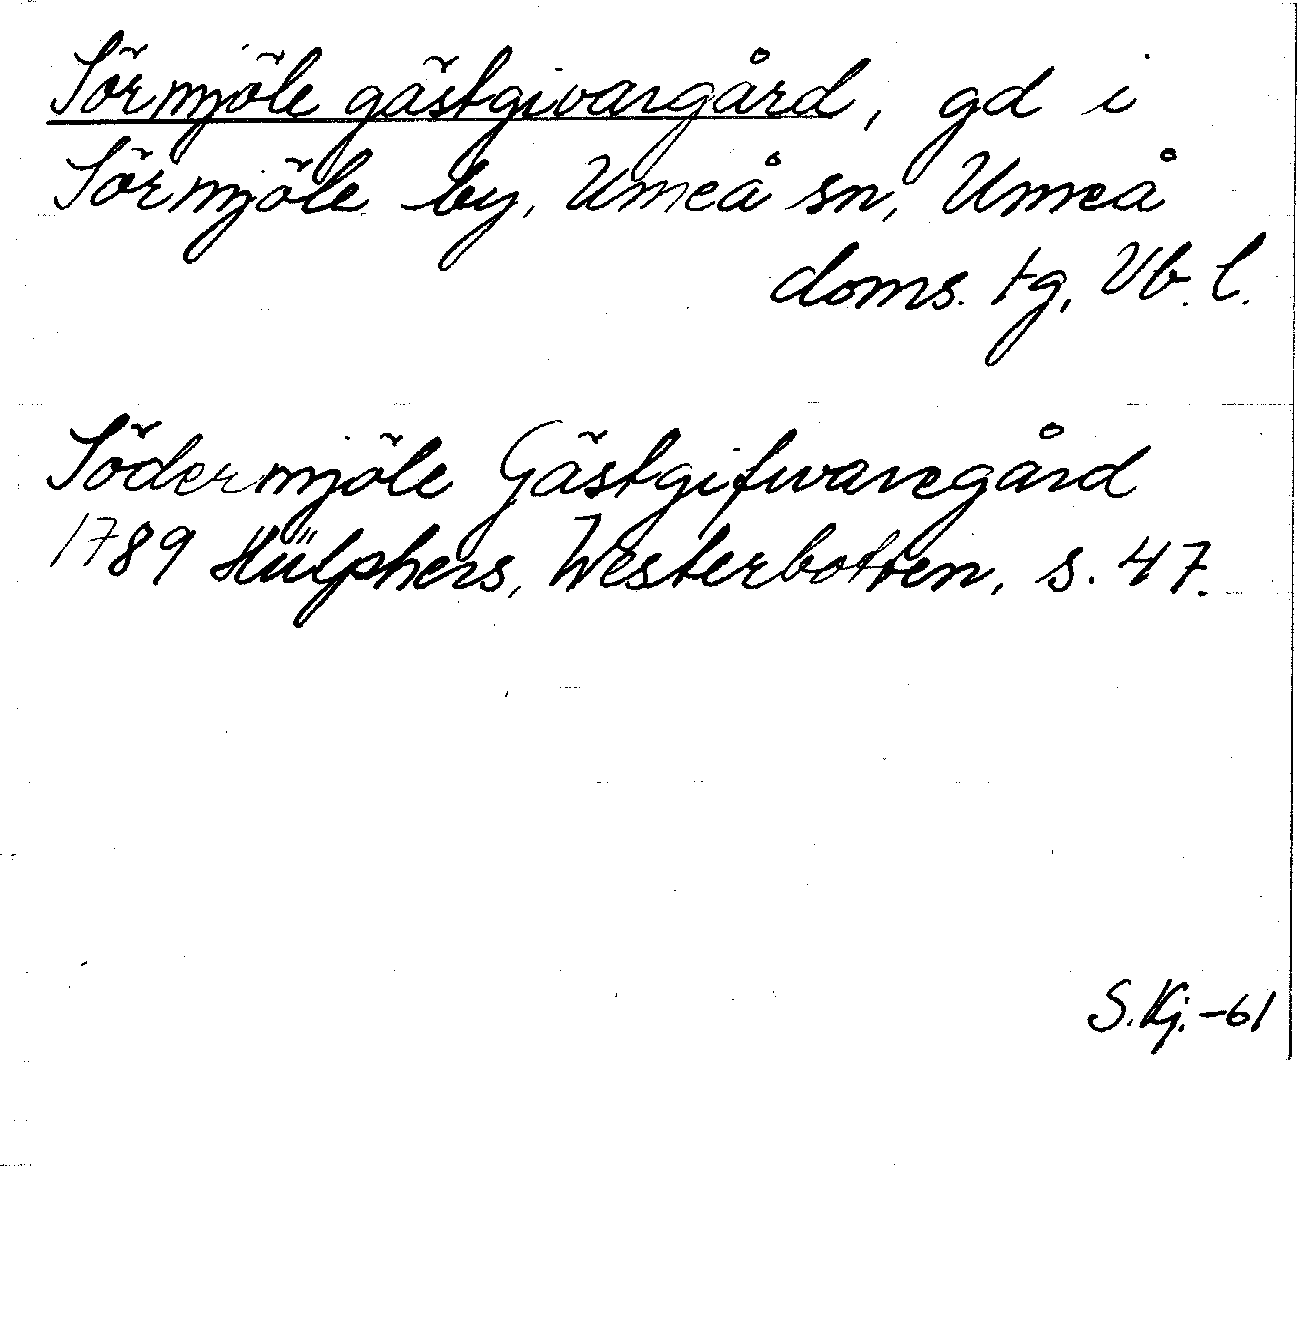 Sörmjöle gästgivargård, gd i
Sörmjöle by, Umeå sn, Umeå
doms. tg, Vb. l.
Södermjöle Gästgifwaregård
1789 Hülphers, Westerbotten, s. 47.
S.Kj.-61